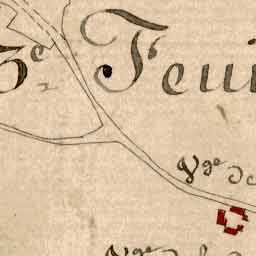 3e Feui
Vge de
Vge